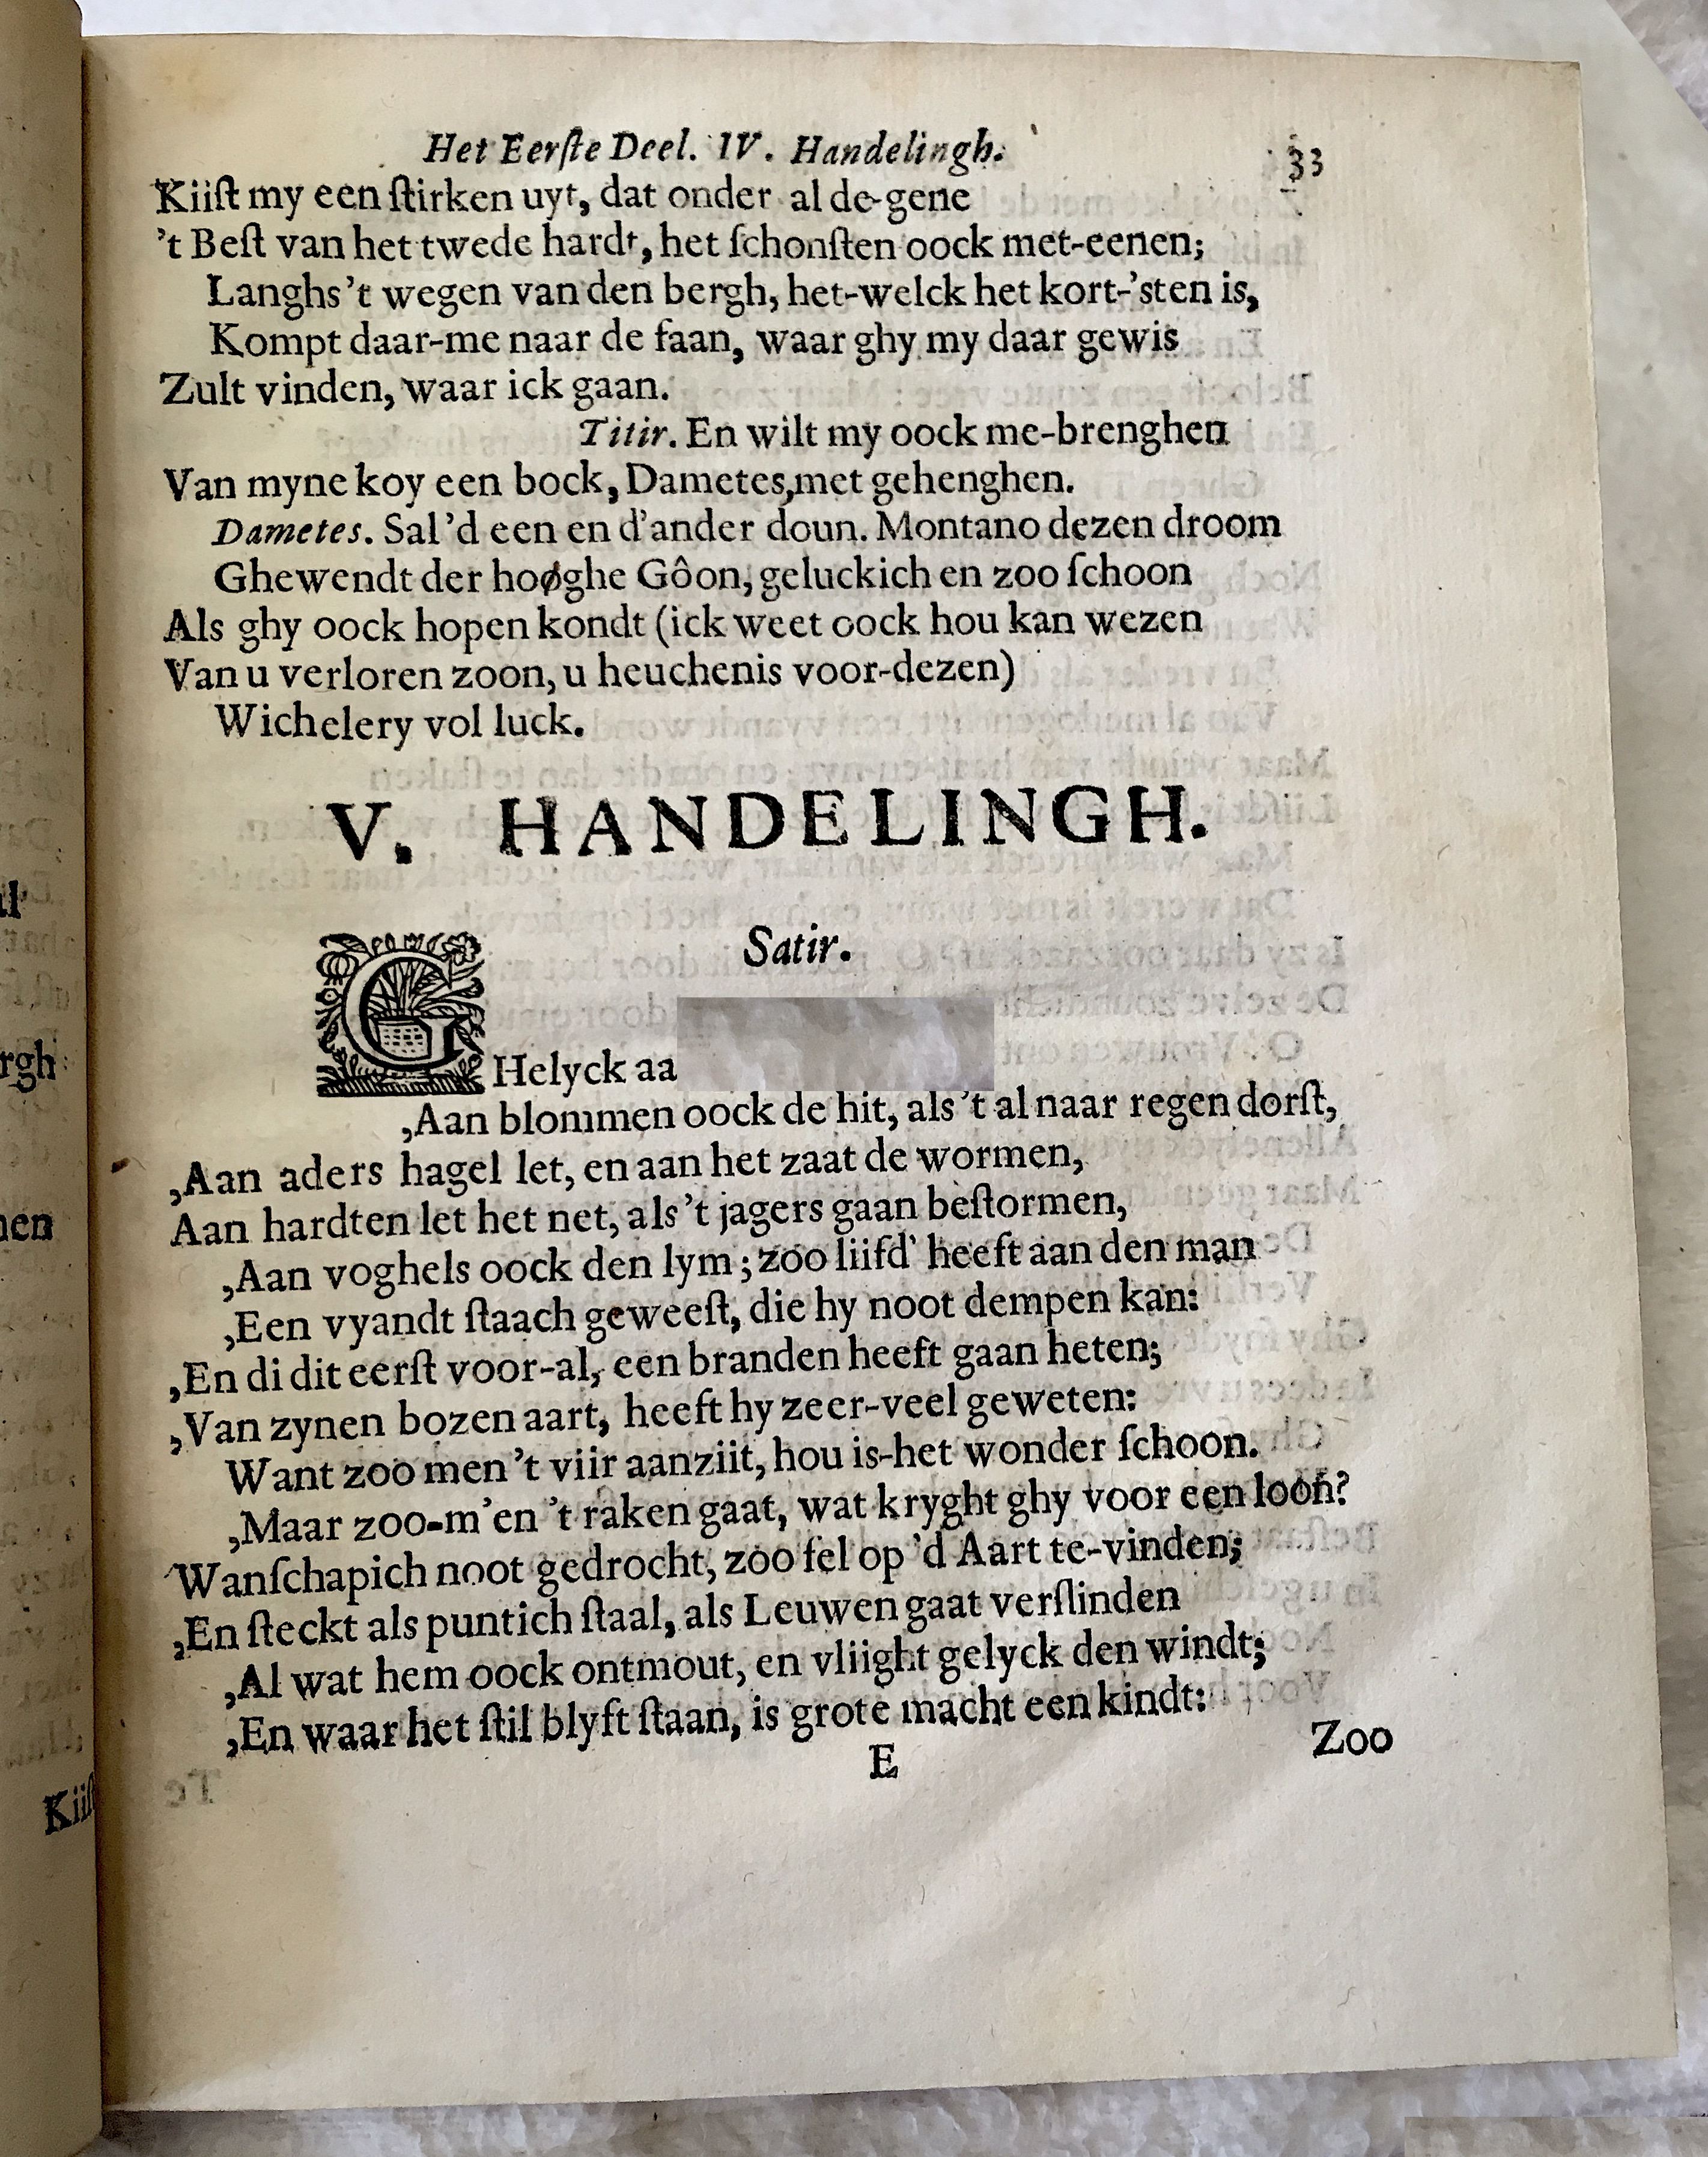 Het Eerſte Deel. IV. Handelingh. 33
Kiiſt my een ſtirken uyt, dat onder al de-gene
't Beſt van het twede hardt, het ſchonſten oock met-eenen;
Langhs't wegen van den bergh, het-welck het kort-'sten is,
Kompt daar-me naar de faan, waar ghy my daar gewis
Zult vinden, waar ick gaan.
Titir. En wilt my oock me-brenghen
Van myne koy een bock, Dametes, met gehenghen.
Dametes. Sal'd een en d'ander doun. Montano dezen droom
Ghewendt der hooghe Gôon, geluckich en zoo ſchoon
Als ghy oock hopen kondt (ick weet oock hou kan wezen
Van u verloren zoon, u heuchenis voor-dezen)
Wichelery vol luck.
V. HANDELINGH.
Satir.
GHelyck aa
,Aan blommen oock de hit, als't al naar regen dorſt,
,Aan aders hagel let, en aan het zaat de wormen,
Aan hardten let het net, als't jagers gaan beſtormen,
,Aan voghels oock den lym; zoo liifd' heeft aan den man
,Een vyandt ſtaach geweeſt, die hy noot dempen kan:
,En di dit eerſt voor-al, een branden heeft gaan heten;
,Van zynen bozen aart, heeft hy zeer-veel geweten:
Want zoo men't viir aanziit, hou is-het wonder ſchoon.
,Maar zoo-m'en 't raken gaat, wat kryght ghy voor een loon?
Wanſchapich noot gedrocht, zoo fel op 'd Aart te-vinden;
,En ſteckt als puntich ſtaal, als Leuwen gaat verſlinden
,Al wat hem oock ontmout, en vliight gelyck den windt;
,En waar het ſtil blyft ſtaan, is grote macht een kindt:
E Zoo
al
rgh
nen
Kiiſ